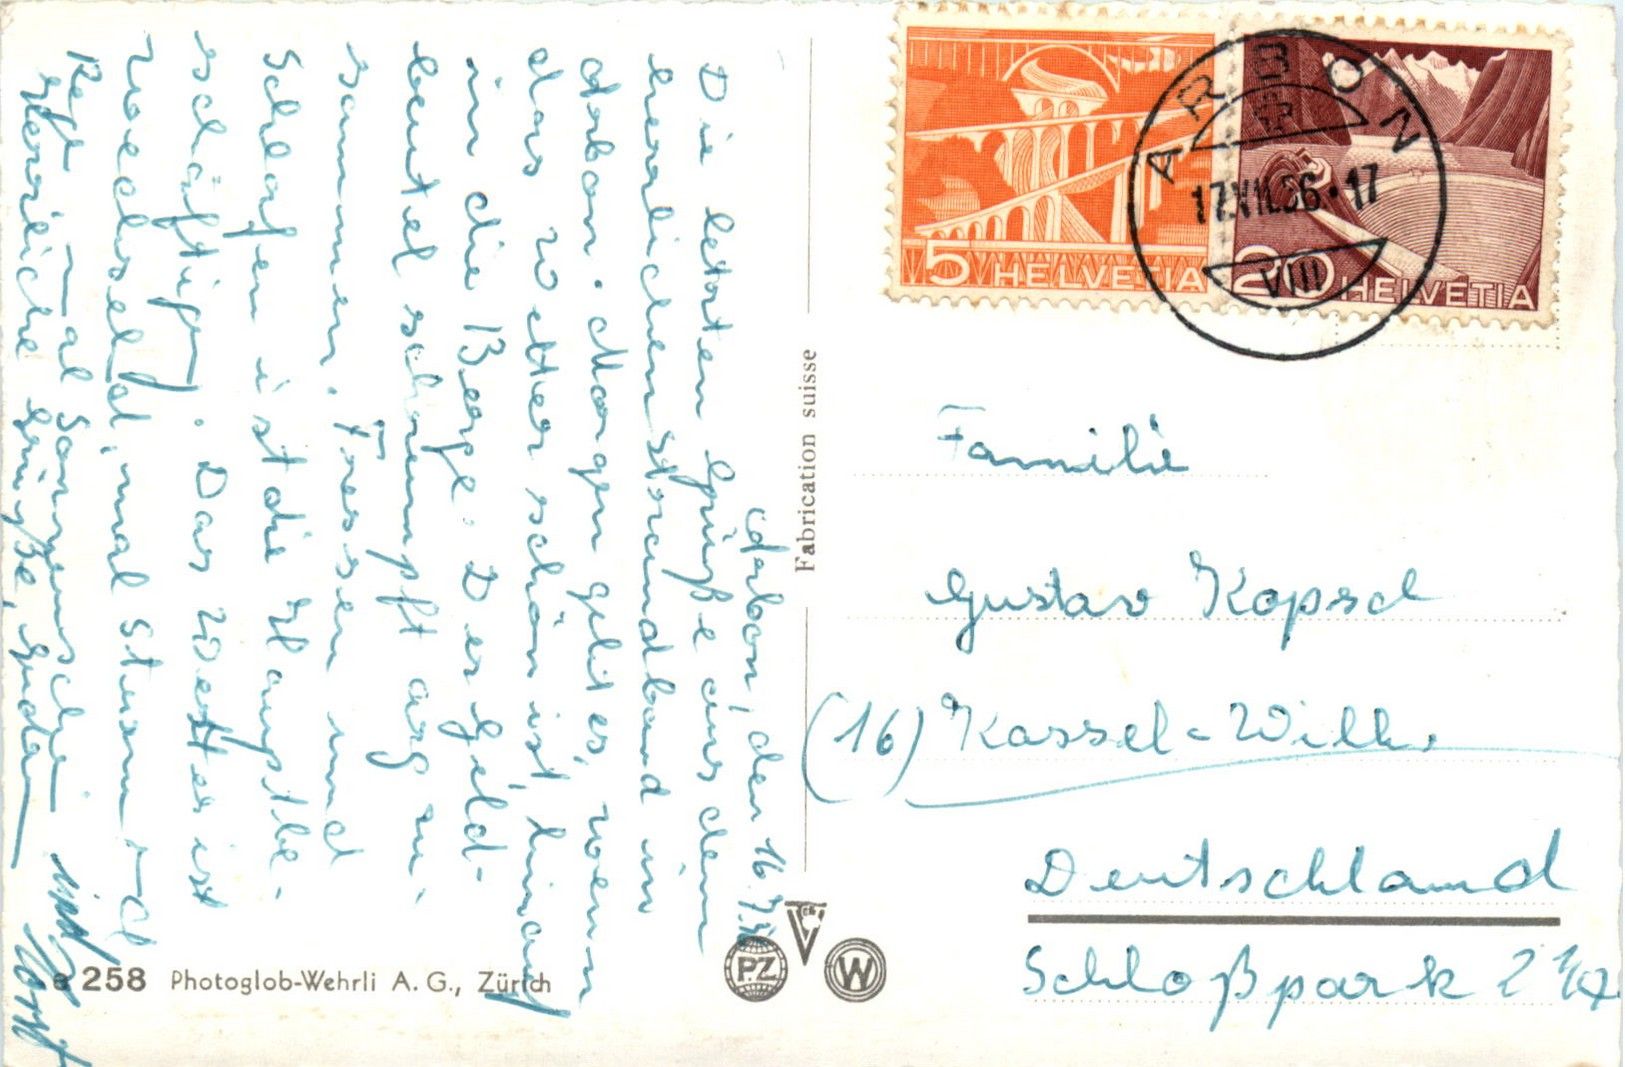 Arbon, den 16.7.56
Die letzten Grüße aus dem
herrlichen Strandbad in
Arbon. Morgen geht es, wenn
das Wetter schön ist, hinauf
in die Berge. Der Geld-
beutel schrumpft arg zu-
sammen. Fressen und
Schlafen ist die Hauptbe-
schäftigg. Das Wetter ist
wechselnd, mal Sturm u.
Reg, mal Sonnenschein
Herzliche Grüße,
und Horst
e 258 Photoglob-Wehrli A. G., Zürich
Fabrication suisse
PZ
W
5 HELVETIA
20 HELVETIA
ARBON
17.VII.56·17
VIII
Familie
Gustav Kopsch
(16) Kassel-Wilh.
Deutschland
Schloßpark 2